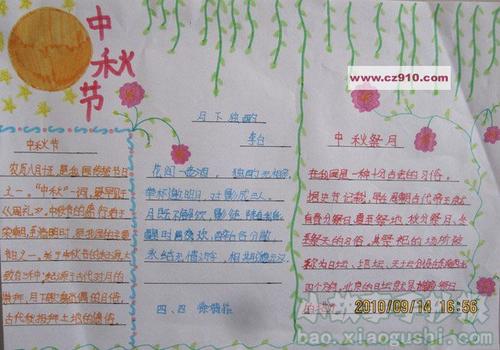 中秋节
www.cz910.com
中秋节
农历八月十五,是我国传统节日
之一。"中秋"一词,最早见于
《周礼》。中秋节的盛行始于
宋朝,至明清时,已
之一。关于中秋节的起源,大
致有三种:起源于古代对月的
崇拜、月下歌舞觅偶的习俗,
古代秋报拜土地的遗俗
月下独酌
李白
花间一壶酒,独酌无相亲。
举杯邀明月,对影成三人。
月既不解饮,影徒随我身。
醒时同交欢,醉后各分散。
永结无情游,相期邈云汉。
四、四
中秋祭月
在我国是一种十分古老的习俗。
据史书记载,早在周朝,古代帝王就有
春分祭日、夏至祭地、秋分祭月、冬至
祭天的习俗。其祭祀的场所被
称为日坛、地坛、月坛、天坛。分设在东南西北
四个方向。北京的月坛就是明清皇帝祭月
的
2010/09/14 16:56
bao.xiaogushi.com